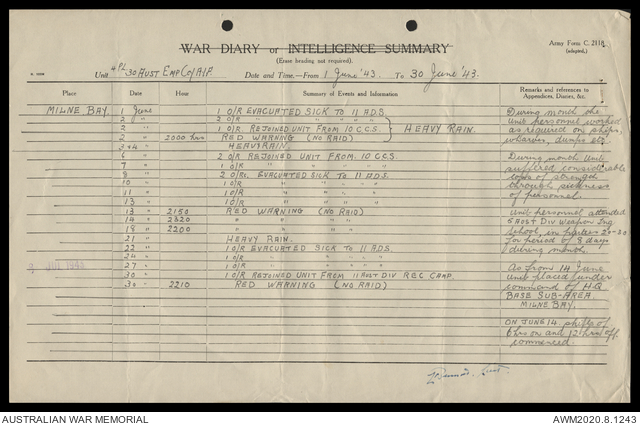 WAR DIARY or INTELLIGENCE SUMMARY
Army Form C. 2118.
(adapted.)
(Erase heading not required).
Unit 4 PL 30 AUST EMP COY AIF. Date and Time.—From 1 June '43. To 30 June '43.
Place Date Hour Summary of Events and Information Remarks and references to Appendices, Diaries, &c.
MILNE BAY. 1 June 1 O/R EVACUATED SICK TO 11 A.D.S.
2 " 2 O/R " " " "
2 " 1 O/R REJOINED UNIT FROM 10 C.C.S. HEAVY RAIN.
2 2000 hrs RED WARNING (NO RAID)
3+4 " HEAVY RAIN.
6 " 2 O/R REJOINED UNIT FROM 10 C.C.S.
7 " 1 O/R " " " "
8 " 2 O/Rs. EVACUATED SICK TO 11 ADS.
10 " 1 O/R " " " "
11 " 1 O/R " " " "
13 " 1 O/R " " " "
13 " 2150 RED WARNING (NO RAID)
14 " 2320 " " " "
18 " 2200 " " " "
21 " HEAVY RAIN.
22 " 1 O/R EVACUATED SICK TO 11 ADS.
24 " 1 O/R " " " "
27 " 1 O/R " " " "
30 " 1 O/R REJOINED UNIT FROM 11 AUST DIV REC CAMP.
30 " 2210 RED WARNING (NO RAID)
During month the
unit personnel worked
as required on ships,
wharves, dumps etc.
During month Unit
suffered considerable
loss of strength
through sickness
of personnel.
Unit personnel attended
5 Aust Div Weapon Tng
School, in parties 20-30
for period of 8 days
during month.
As from 14 June
unit placed under
command of H.Q.
BASE SUB-AREA.
MILNE BAY.
ON JUNE 14. shifts of
6 hrs on and 12 hrs off
commenced.
JUL 1943
Lieut.
AUSTRALIAN WAR MEMORIAL
AWM2020.8.1243